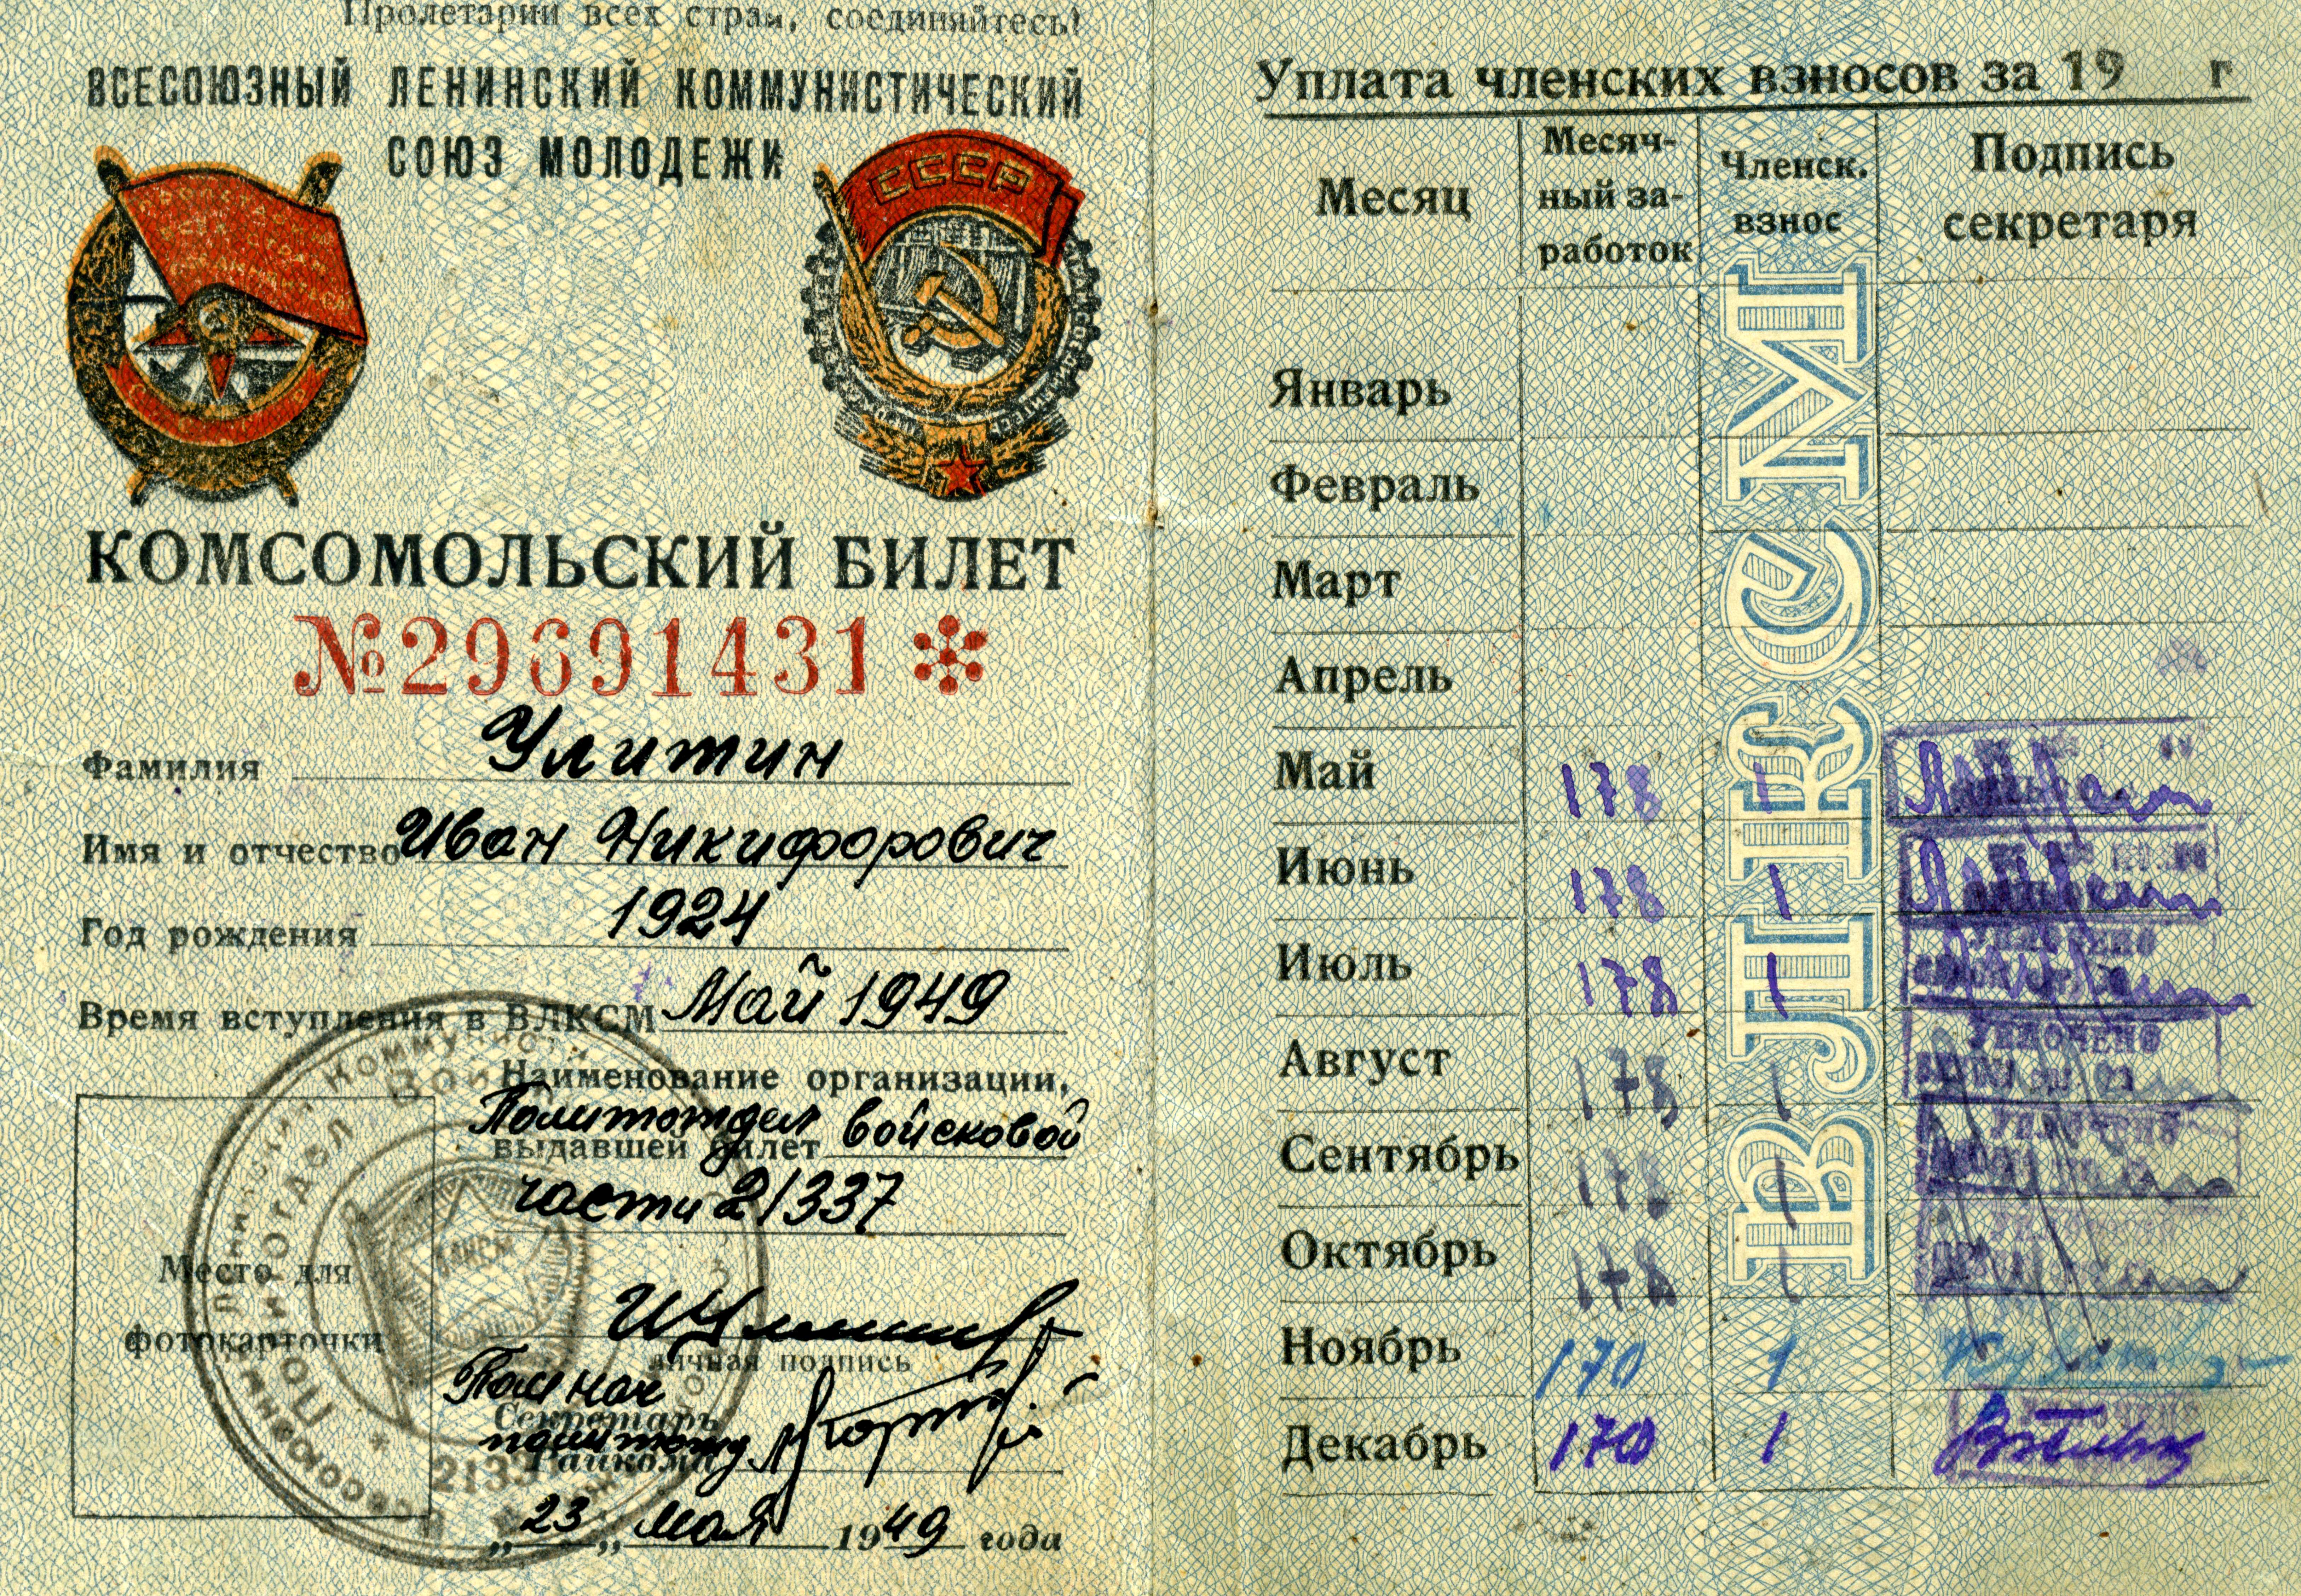 Пролетарии всех стран, соединяйтесь!
ВСЕСОЮЗНЫЙ ЛЕНИНСКИЙ КОММУНИСТИЧЕСКИЙ
СОЮЗ МОЛОДЕЖИ
СССР
КОМСОМОЛЬСКИЙ БИЛЕТ
№29691431
Фамилия Улитин
Имя и отчество Иван Никифорович
Год рождения 1924
Время вступления в ВЛКСМ Май 1949
Наименование организации,
выдавшей билет Политотдел войсковой
части 21337
Место для
фотокарточки
личная подпись
Пом нач
Секретарь
политотд
Райкома
„23„ мая 1949 года
Уплата членских взносов за 19 г
Месяц
Месяч-
ный за-
работок
Членск.
взнос
Подпись
секретаря
Январь
Февраль
Март
Апрель
Май 178 1
Июнь 178 1
Июль 178 1
Август 178 1
Сентябрь 178 1
Октябрь 178 1
Ноябрь 170 1
Декабрь 170 1
ВЛКСМ